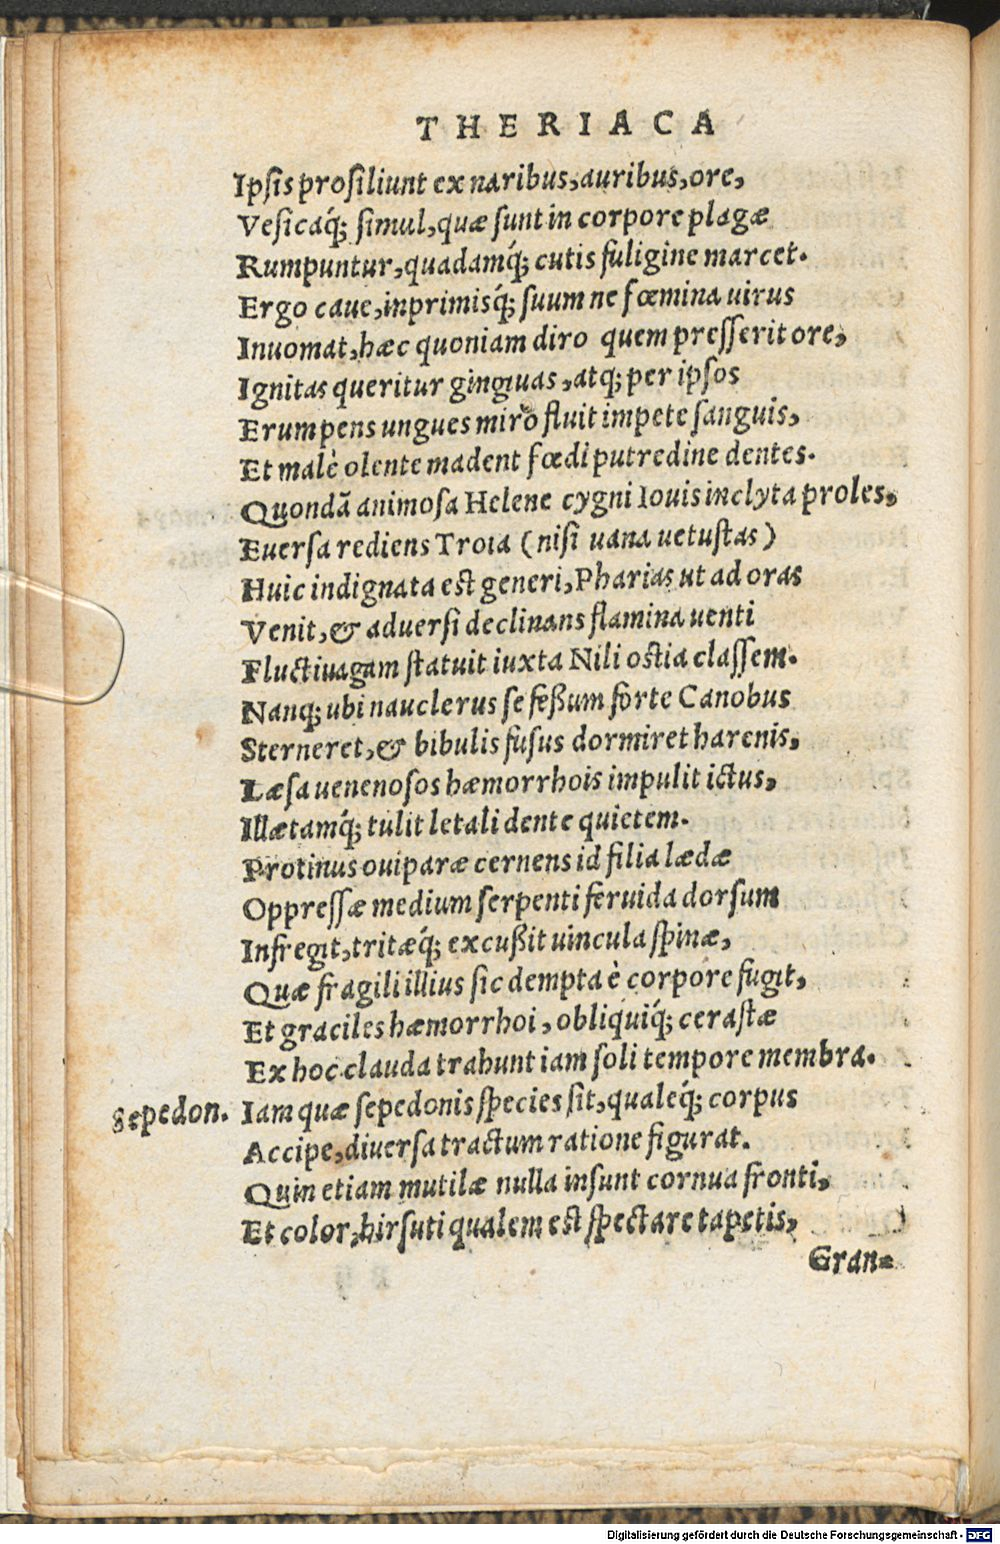 THERIACA
Ipsis prosiliunt ex naribus, auribus, ore,
Vesicaq́; simul, quæ sunt in corpore plagæ
Rumpuntur, quadamq́; cutis fuligine marcet.
Ergo caue, inprimisq́; suum ne fœmina uirus
Inuomat, hæc quoniam diro quem presserit ore,
Ignitas queritur gingiuas, atq; per ipsos
Erumpens ungues miro fluit impete sanguis,
Et malè olente madent fœdi putredine dentes.
Quondã animosa Helene cygni Iouis inclyta proles,
Euersa rediens Troia (nisi uana uetustas)
Huic indignata est generi, Pharias ut ad oras
Venit, & aduersi declinans flamina uenti
Fluctiuagam statuit iuxta Nili ostia classem.
Nanq; ubi nauclerus se feßum forte Canobus
Sterneret, & bibulis fusus dormiret harenis,
Læsa uenenosos hæmorrhois impulit ictus,
Illætamq́; tulit letali dente quietem.
Protinus ouiparæ cernens id filia lædæ
Oppressæ medium serpenti feruida dorsum
Infregit, tritæq́; excußit uincula spinæ,
Quæ fragili illius sic dempta è corpore fugit,
Et graciles hæmorrhoi, obliquiq́; cerastæ
Ex hoc clauda trahunt iam soli tempore membra.
Sepedon. Iam quæ sepedonis species sit, qualeq́; corpus
Accipe, diuersa tractum ratione figurat.
Quin etiam mutilæ nulla insunt cornua fronti,
Et color, hirsuti qualem est spectare tapetis,
Gran=
Digitalisierung gefördert durch die Deutsche Forschungsgemeinschaft - DFG